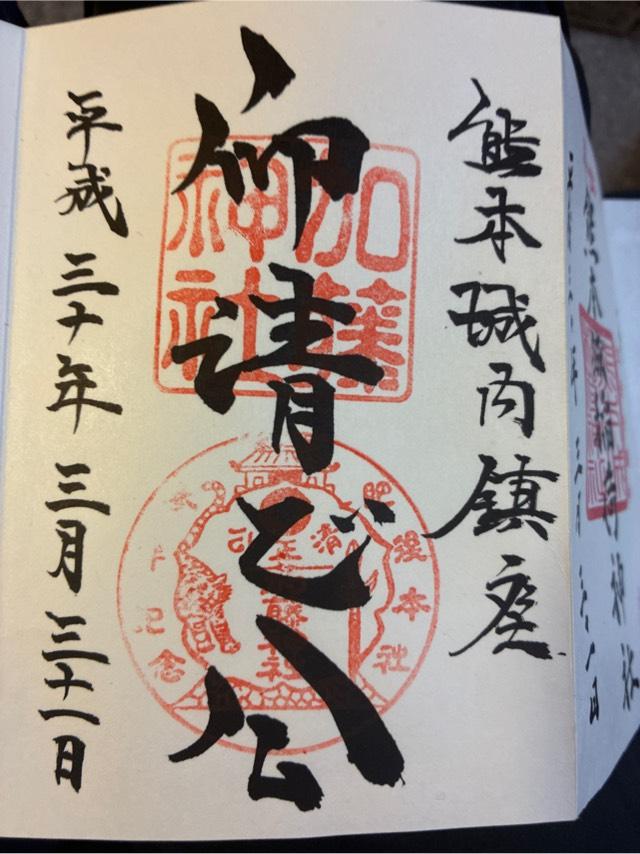 熊本城内鎮座
仰清正公
平成三十年三月三十一日
加藤
神社
肥後本社
記念
清正公
加藤神社